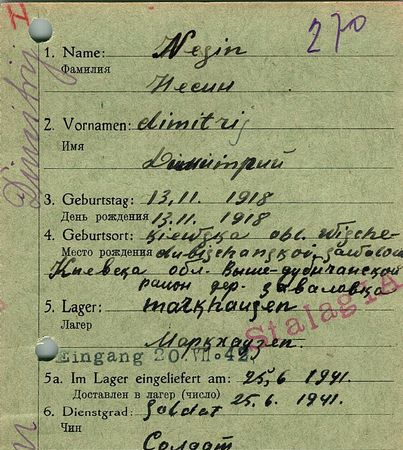 270
1. Name: Negin
Фамилия
Несин
2. Vornamen: dimitrij
Имя
Димитрий
Dimitrij
3. Geburtstag: 13. 11. 1918
День рождения 13. 11. 1918
4. Geburtsort:
Место рождения
Киевска обл. Выше-дубичанской
район дер. Заваловка
5. Lager: markhausen
Лагер
Маркхаузен
Stalag I A
Eingang 20. VII. 42
5a. Im Lager eingeliefert am: 25, 6 1941.
Доставлен в лагер (число) 25. 6 1941.
6. Dienstgrad: Soldat
Чин
Солдат